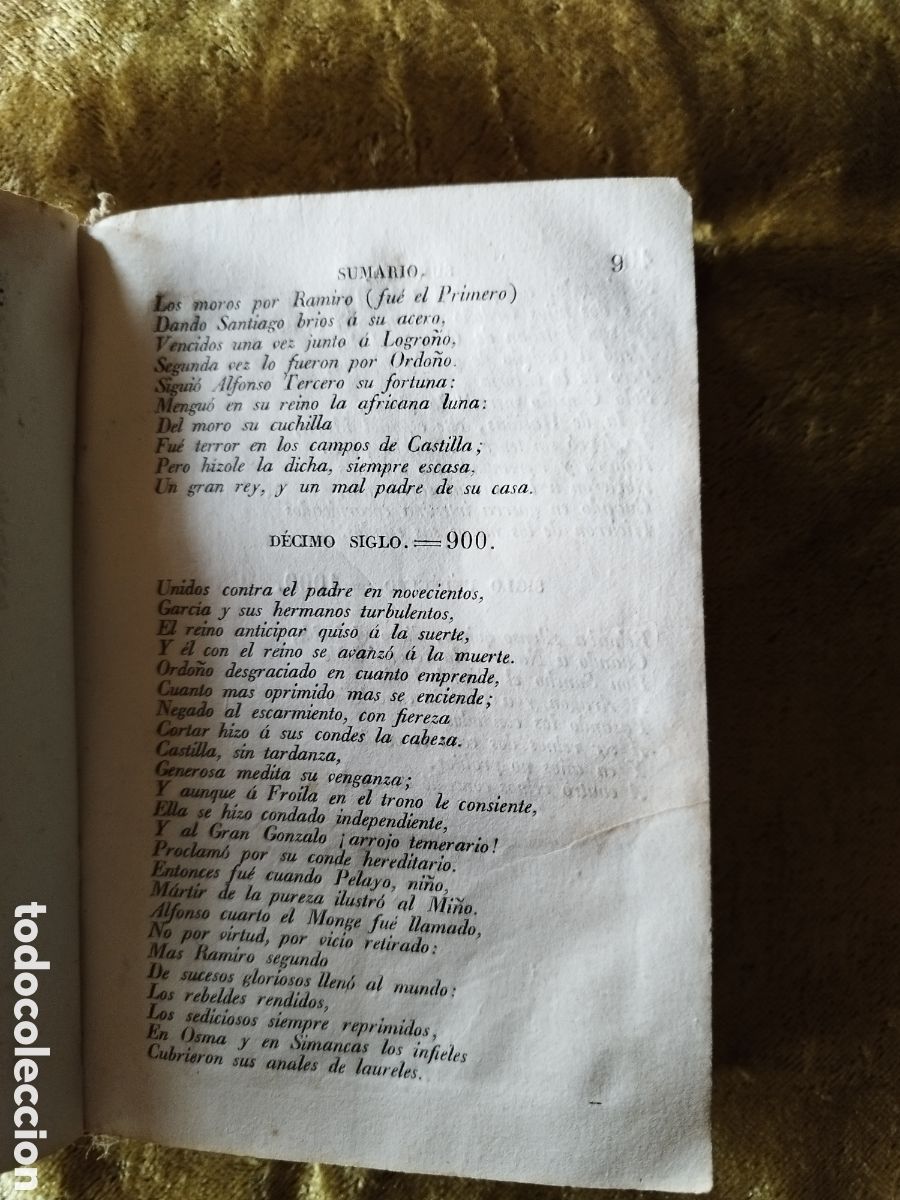 SUMARIO. 9
Los moros por Ramiro (fué el Primero)
Dando Santiago brios á su acero,
Vencidos una vez junto á Logroño,
Segunda vez lo fueron por Ordoño.
Siguió Alfonso Tercero su fortuna:
Menguó en su reino la africana luna:
Del moro su cuchilla
Fué terror en los campos de Castilla;
Pero hízole la dicha, siempre escasa,
Un gran rey, y un mal padre de su casa.
DÉCIMO SIGLO.=900.
Unidos contra el padre en novecientos,
García y sus hermanos turbulentos,
El reino anticipar quiso á la suerte,
Y él con el reino se avanzó á la muerte.
Ordoño desgraciado en cuanto emprende,
Cuanto mas oprimido mas se enciende;
Negado al escarmiento, con fiereza
Cortar hizo á sus condes la cabeza.
Castilla, sin tardanza,
Generosa medita su venganza;
Y aunque á Froila en el trono le consiente,
Ella se hizo condado independiente,
Y al Gran Gonzalo ¡arrojo temerario!
Proclamó por su conde hereditario.
Entonces fué cuando Pelayo, niño,
Mártir de la pureza ilustró al Miño.
Alfonso cuarto el Monge fué llamado,
No por virtud, por vicio retirado:
Mas Ramiro segundo
De sucesos gloriosos llenó al mundo:
Los rebeldes rendidos,
Los sediciosos siempre reprimidos,
En Osma y en Simancas los infieles
Cubrieron sus anales de laureles.
todocoleccion